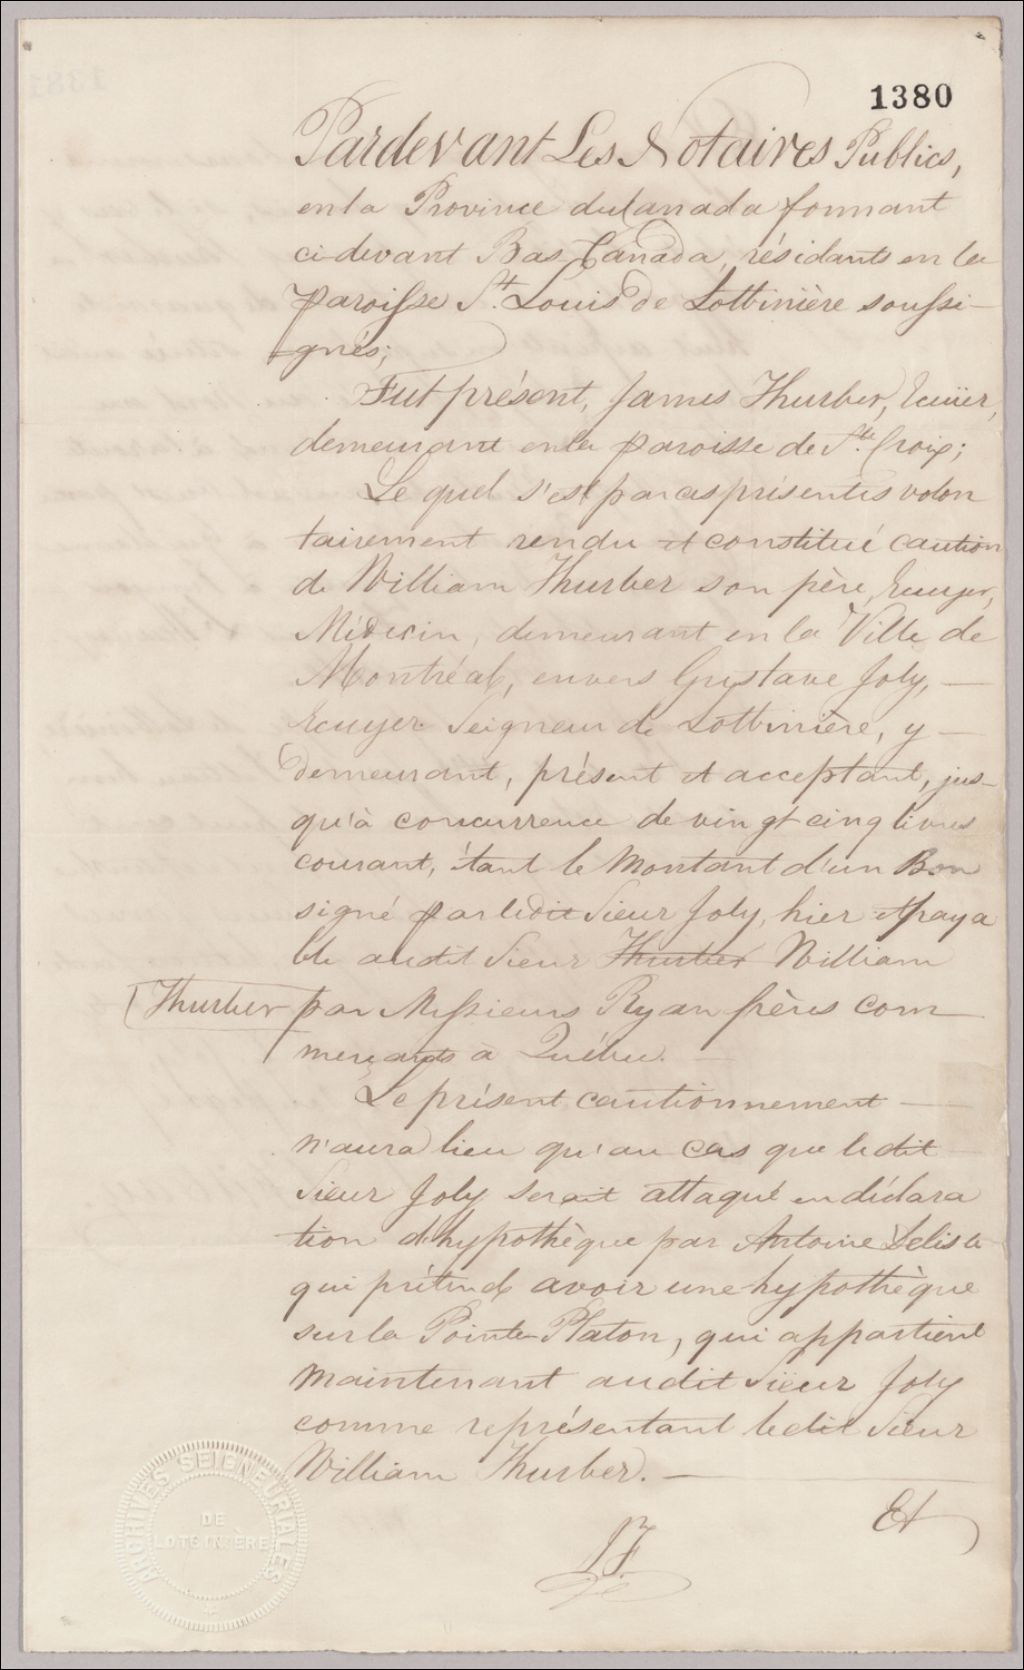 1380
Pardevant Les Notaires Publics,
en la Province du Canada formant
ci-devant Bas Canada, résidants en la
paroisse St. Louis de Lotbinière soussi-
gnés;
Fut présent, James Thurber, Ecuïer,
demeurant en la paroisse de Ste. Croix;
Le quel s'est par ces présentes volon
tairement rendu et constitué caution
de William Thurber son père, Ecuyer,
Médecin, demeurant en la Ville de
Montréal, envers Gustave Joly, —
Ecuyer Seigneur de Lotbinière, y —
demeurant, présent et acceptant, jus-
qu'à concurrence de vingt cinq livres
courant, étant le Montant d'un Bon
signé par ledit Sieur Joly, hier et paya
ble audit Sieur Thurber William
Thurber par Messieurs Ryan frères com
merçants à Québec. —
Le présent cautionnement —
n'aura lieu qu'au cas que ledit
Sieur Joly serait attaqué en déclara
tion d'hypothèque par Antoine Delisle
qui prétend avoir une hypothèque
sur la Pointe Platon, qui appartient
maintenant audit Sieur Joly
comme représentant ledit Sieur
William Thurber. —
Et
JT
ARCHIVES SEIGNEURIALES
DE
LOTBINIÈRE